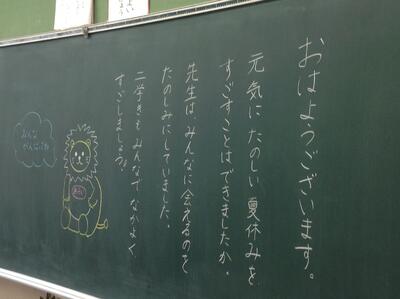 おはようございます。
元気にたのしい夏休みを
すごすことはできましたか。
先生はみんなに会えるのを
たのしみにしていました。
二学きもみんなでなかよく
すごしましょう!
みんな
がんばってね